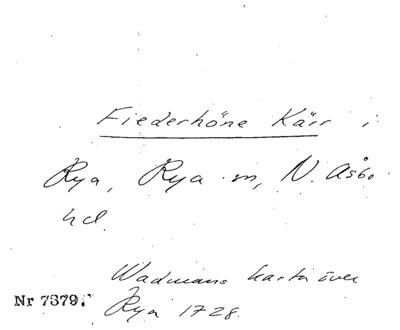 Fiederhöne Kärr i
Rya, Rya sn, N. Åsbo
hd.
Wadmans karta över
Nr 7379. Rya 1728.